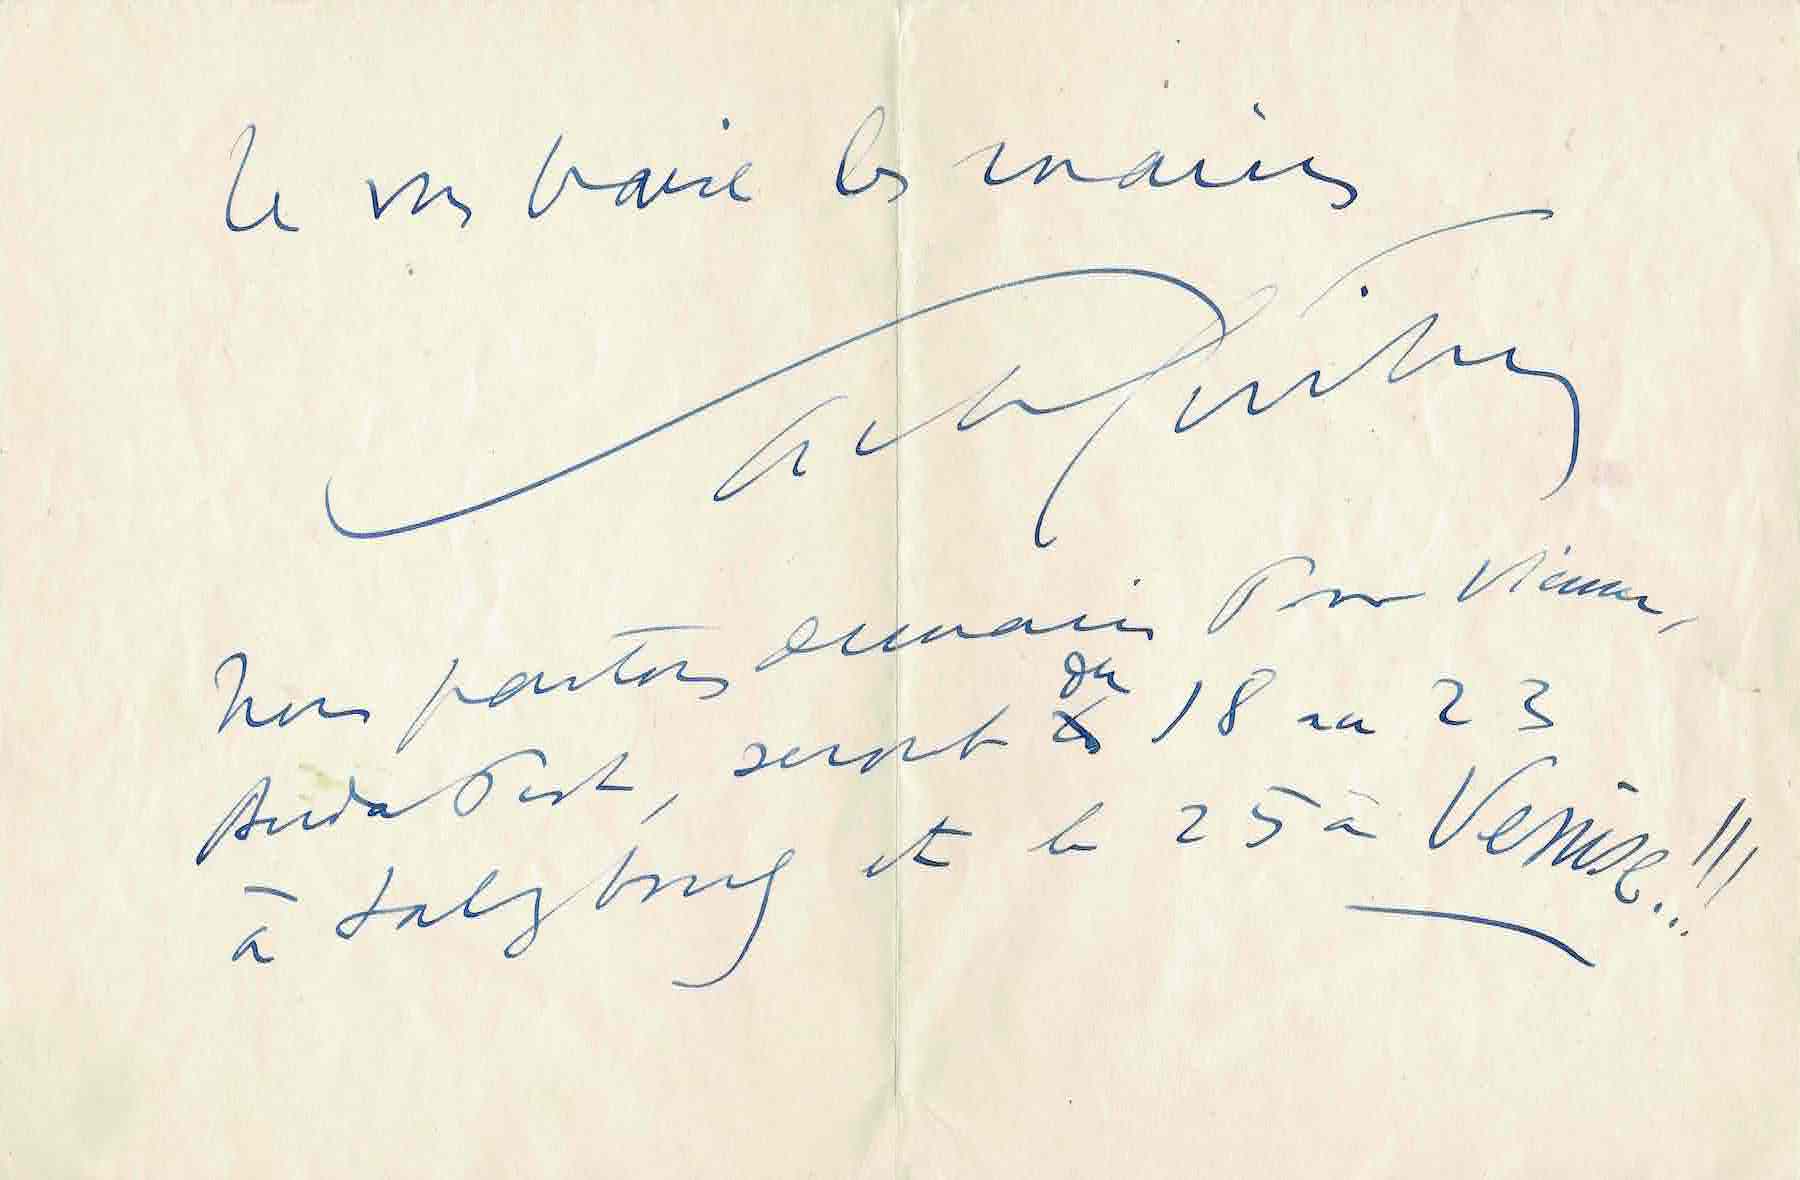 Je vous baise les mains
Sacha Guitry
Nous partons demain Pour Vienne,
BudaPest, serons du 18 au 23
à Salzbourg et le 25 à Venise..!!!